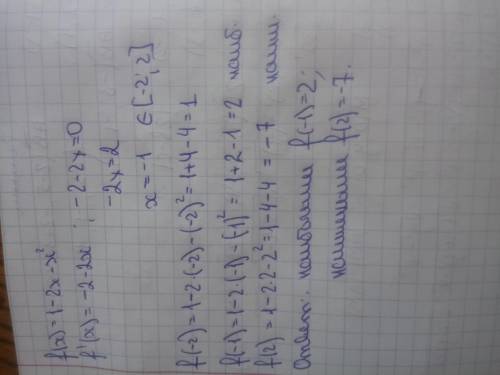 f(x) = 1 - 2x - x²
f'(x) = -2 - 2x ; -2 - 2x = 0
-2x = 2
x = -1 ∈ [-2; 2]
f(-2) = 1 - 2·(-2) - (-2)² = 1 + 4 - 4 = 1
f(-1) = 1 - 2·(-1) - (-1)² = 1 + 2 - 1 = 2 наиб.
f(2) = 1 - 2·2 - 2² = 1 - 4 - 4 = -7 наим.
Ответ: наибольшее f(-1) = 2;
наименьшее f(2) = -7.